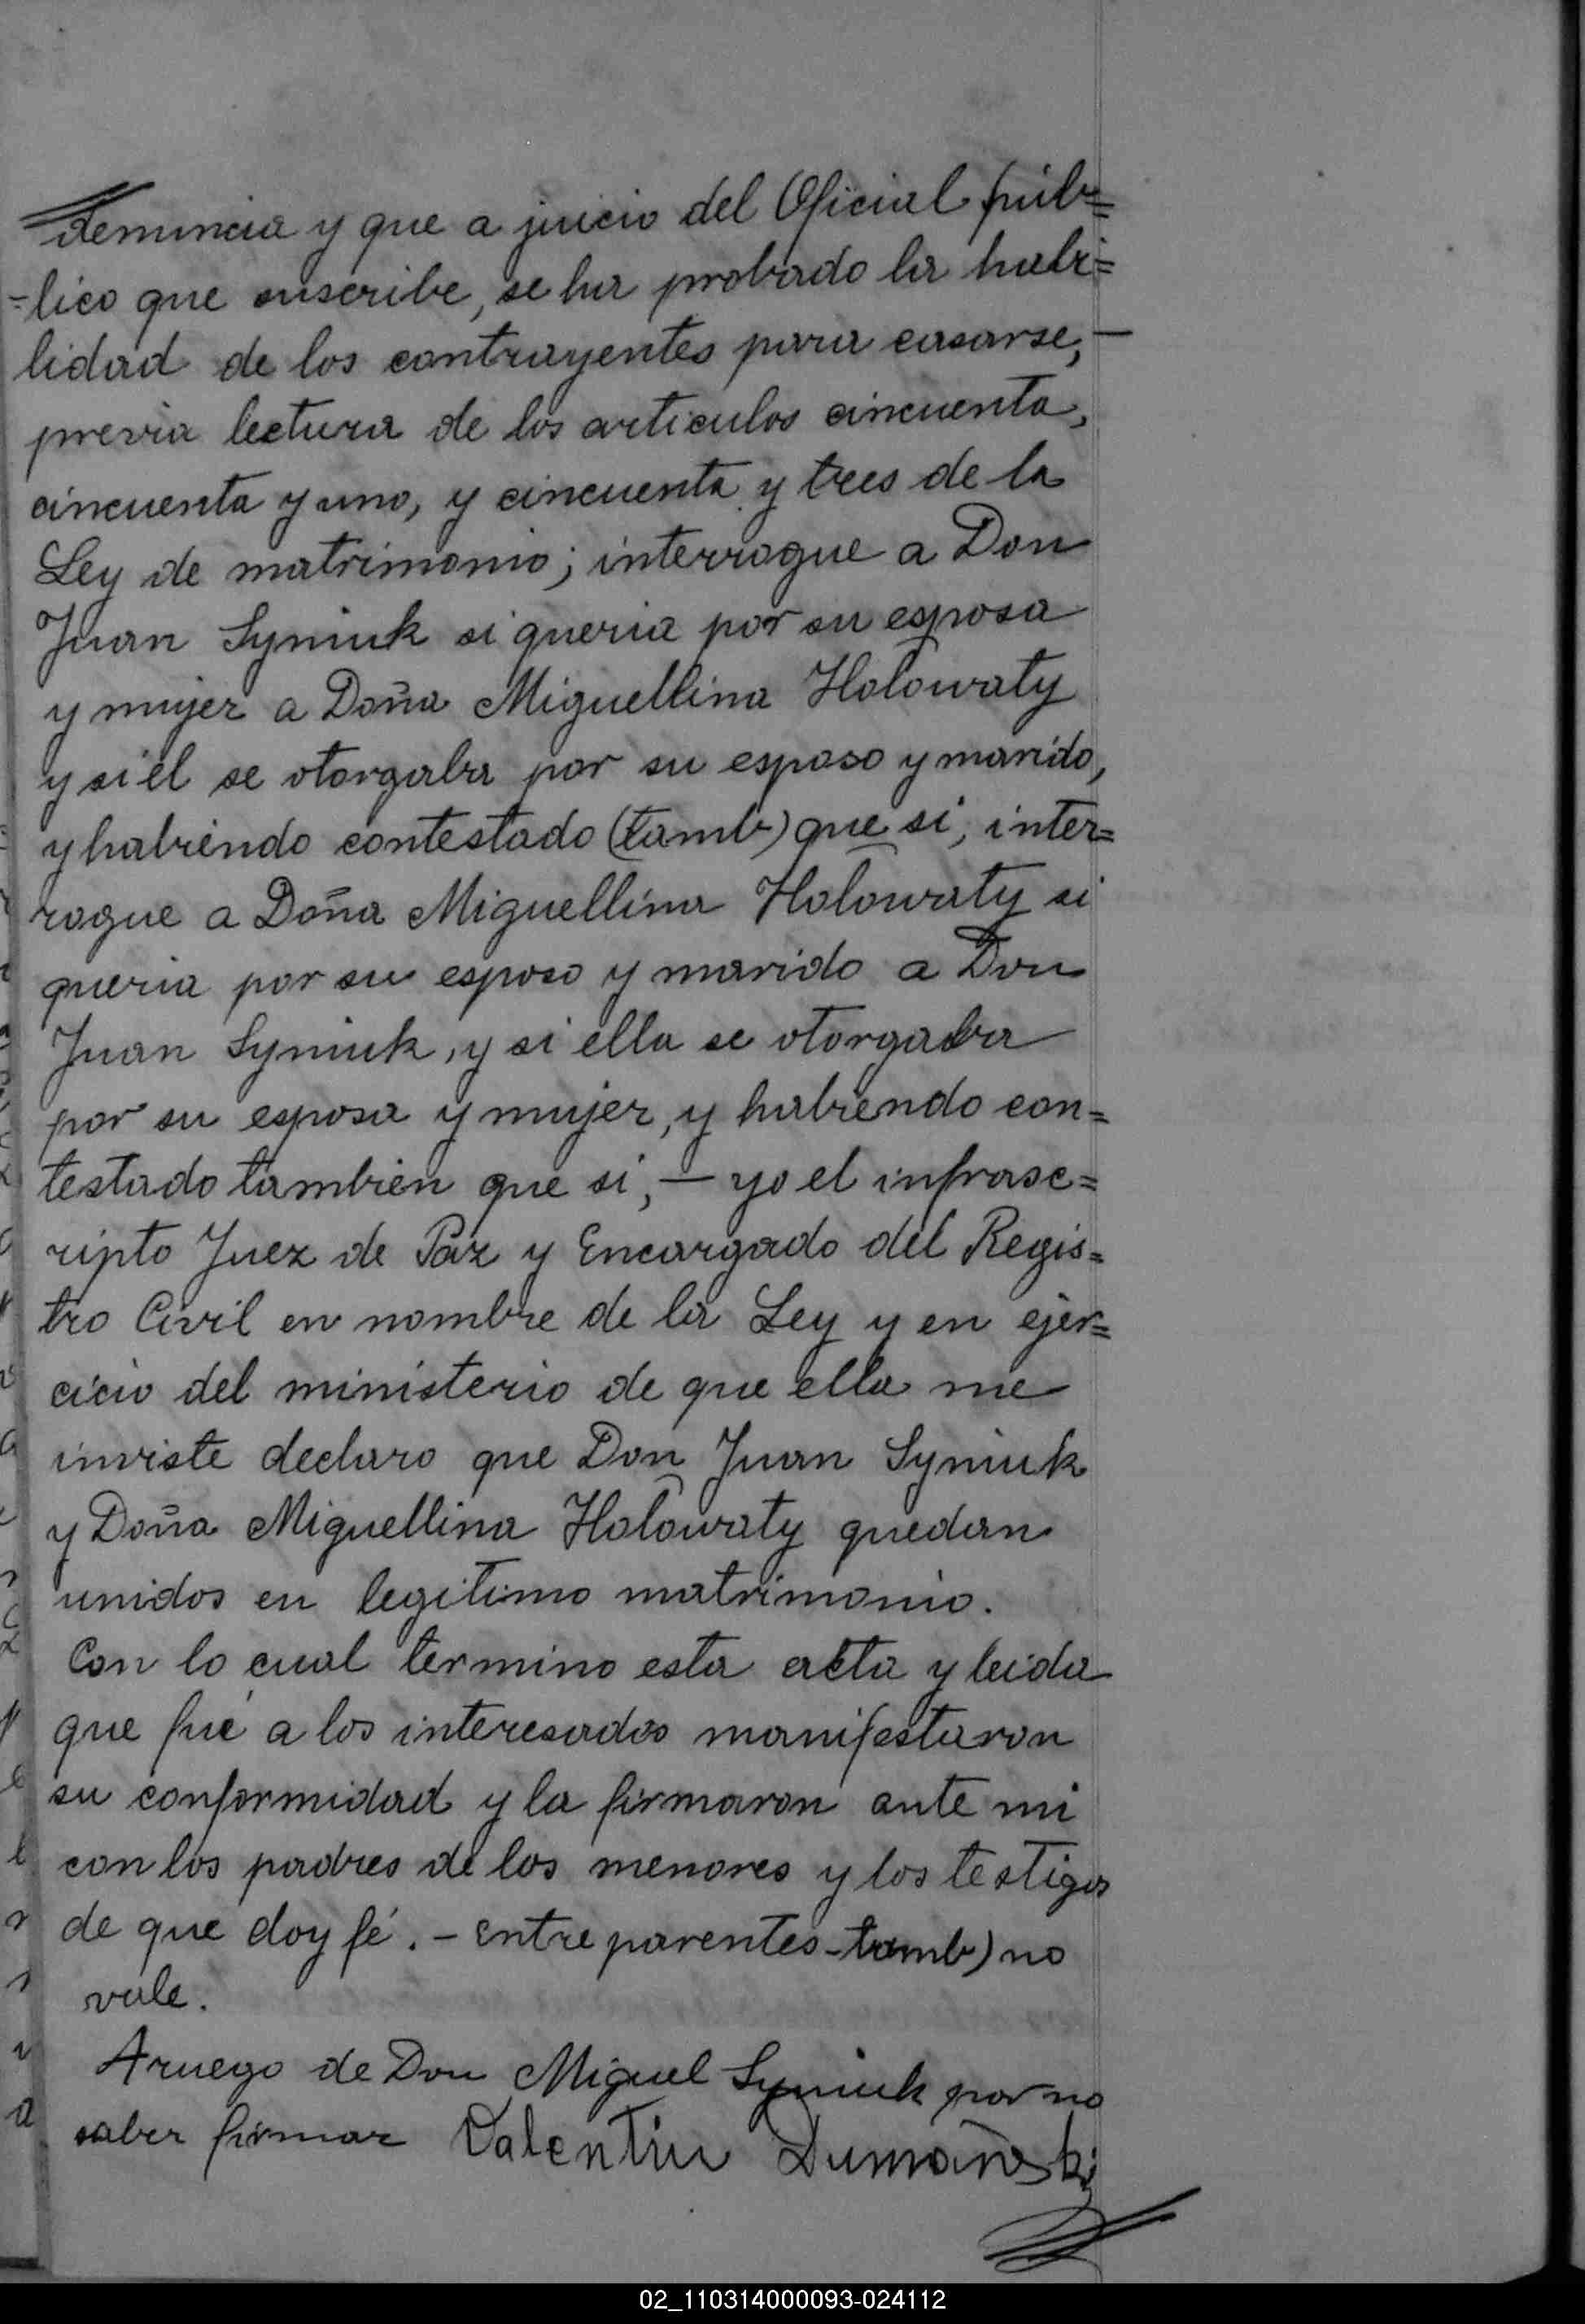 denuncia y que a juicio del Oficial púb=
=lico que suscribe, se ha probado la habi=
lidad de los contrayentes para casarse, —
previa lectura de los articulos cincuenta,
cincuenta y uno, y cincuenta y tres de la
Ley de matrimonio; interrogue a Don
Juan Syniuk si queria por su esposa
y mujer a Doña Miguellina Holowaty
y si él se otorgaba por su esposo y marido,
y habiendo contestado (tamb) que si, inter=
rogue a Doña Miguellina Holowaty si
queria por su esposo y marido a Don
Juan Syniuk, y si ella se otorgaba
por su esposa y mujer, y habiendo con=
testado tambien que si, — yo el infrasc=
ripto Juez de Paz y Encargado del Regis=
tro Civil en nombre de la Ley y en ejer=
cicio del ministerio de que ella me
inviste declaro que Don Juan Syniuk
y Doña Miguellina Holowaty quedan
unidos en legitimo matrimonio.
Con lo cual termino esta acta y leida
que fué a los interesados manifestaron
su conformidad y la firmaron ante mi
con los padres de los menores y los testigos
de que doy fé. - Entre parentes - tamb) no
vale.
Aruego de Don Miguel Syniuk por no
saber firmar Valentin Dumañski
02_110314000093-024112